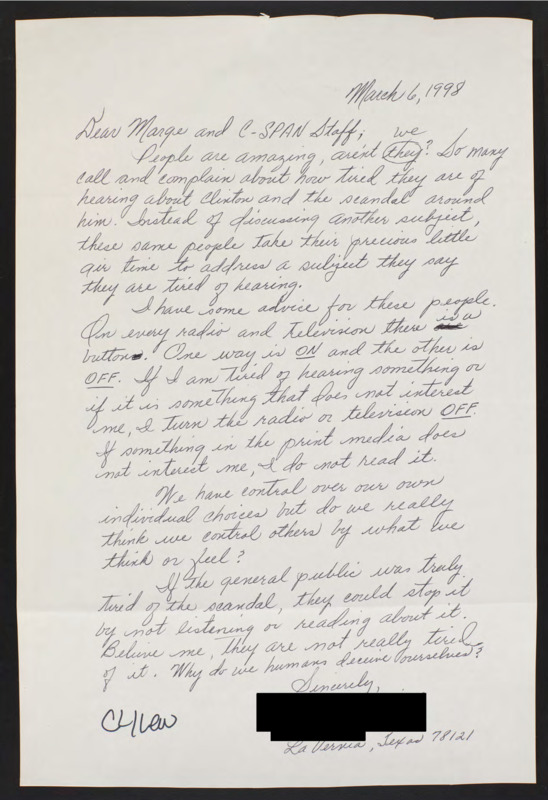 March 6, 1998
Dear Marge and C-SPAN Staff;
we
People are amazing, aren't they? So many
call and complain about how tired they are of
hearing about Clinton and the scandal around
him. Instead of discussing another subject,
these same people take their precious little
air time to address a subject they say
they are tired of hearing.
I have some advice for these people.
On every radio and television there is a
button. One way is ON and the other is
OFF. If I am tired of hearing something or
if it is something that does not interest
me, I turn the radio or television OFF.
If something in the print media does
not interest me, I do not read it.
We have control over our own
individual choices but do we really
think we control others by what we
think or feel?
If the general public was truly
tired of the scandal, they could stop it
by not listening or reading about it.
Believe me, they are not really tired
of it. Why do we humans deceive ourselves?
Sincerely,
La Vernia, Texas 78121